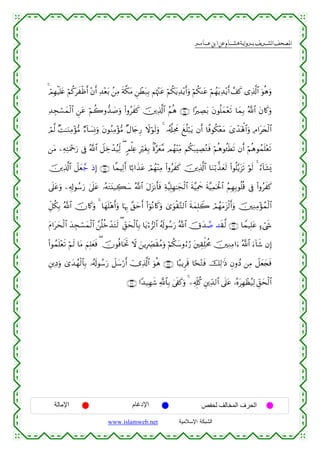 المصحف الشريف برواية هشام عن ابن عامر
وَهُوَ ٱلَّذِى كَفَّ أَيْدِيَهُمْ عَنكُمْ وَأَيْدِيَكُمْ عَنْهُم بِبَطْنِ مَكَّةَ مِنۢ بَعْدِ أَنْ أَظْفَرَكُمْ عَلَيْهِمْ ۚ
وَكَانَ ٱللَّهُ بِمَا تَعْمَلُونَ بَصِيرًا ﴿٢٤﴾ هُمُ ٱلَّذِينَ كَفَرُوا۟ وَصَدُّوكُمْ عَنِ ٱلْمَسْجِدِ
ٱلْحَرَامِ وَٱلْهَدْىَ مَعْكُوفًا أَن يَبْلُغَ مَحِلَّهُۥ ۚ وَلَوْلَا رِجَالٌ مُّؤْمِنُونَ وَنِسَآءٌ مُّؤْمِنَٰتٌ لَّمْ
تَعْلَمُوهُمْ أَن تَطَـُٔوهُمْ فَتُصِيبَكُم مِّنْهُم مَّعَرَّةٌۢ بِغَيْرِ عِلْمٍ ۖ لِّيُدْخِلَ ٱللَّهُ فِى رَحْمَتِهِۦ مَن
يَشَآءُ ۚ لَوْ تَزَيَّلُوا۟ لَعَذَّبْنَا ٱلَّذِينَ كَفَرُوا۟ مِنْهُمْ عَذَابًا أَلِيمًا ﴿٢٥﴾ إِذْ جَعَلَ ٱلَّذِينَ
كَفَرُوا۟ فِى قُلُوبِهِمُ ٱلْحَمِيَّةَ حَمِيَّةَ ٱلْجَٰهِلِيَّةِ فَأَنزَلَ ٱللَّهُ سَكِينَتَهُۥ عَلَىٰ رَسُولِهِۦ وَعَلَى
ٱلْمُؤْمِنِينَ وَأَلْزَمَهُمْ كَلِمَةَ ٱلتَّقْوَىٰ وَكَانُوٓا۟ أَحَقَّ بِهَا وَأَهْلَهَا ۚ وَكَانَ ٱللَّهُ بِكُلِّ
شَىْءٍ عَلِيمًا ﴿٢٦﴾ لَّقَد صَّدَقَ ٱللَّهُ رَسُولَهُ ٱلرُّءْيَا بِٱلْحَقِّ ۖ لَتَدْخُلُنَّ ٱلْمَسْجِدَ ٱلْحَرَامَ
إِن شَآءَ ٱللَّهُ ءَامِنِينَ مُحَلِّقِينَ رُءُوسَكُمْ وَمُقَصِّرِينَ لَا تَخَافُونَ ۖ فَعَلِمَ مَا لَمْ تَعْلَمُوا۟
فَجَعَلَ مِن دُونِ ذَٰلِكَ فَتْحًا قَرِيبًا ﴿٢٧﴾ هُوَ ٱلَّذِىٓ أَرْسَلَ رَسُولَهُۥ بِٱلْهُدَىٰ وَدِينِ
ٱلْحَقِّ لِيُظْهِرَهُۥ عَلَى ٱلدِّينِ كُلِّهِۦ ۚ وَكَفَىٰ بِٱللَّهِ شَهِيدًا ﴿٢٨﴾
الحرف المخالف لحفص الإدغام الإمالة
الشبكة الإسلامية www.islamweb.net